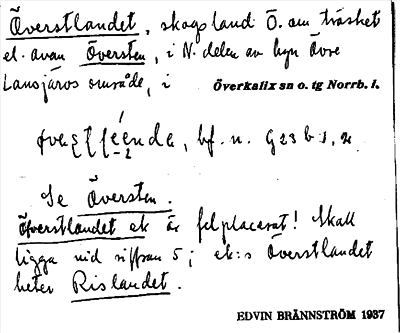 Överstlandet, skogsland Ö. om träsket
el. avan Översten, i N. delen av byn Övre
Lansjärvs område, i Överkalix sn o. tg Norrb. l.
bf. n. G 23 b 1, 2
Se Översten.
Överstlandet ek är felplacerat! Skall
ligga vid siffran 5; ek:s Överstlandet
heter Rislandet.
EDVIN BRÄNNSTRÖM 1937